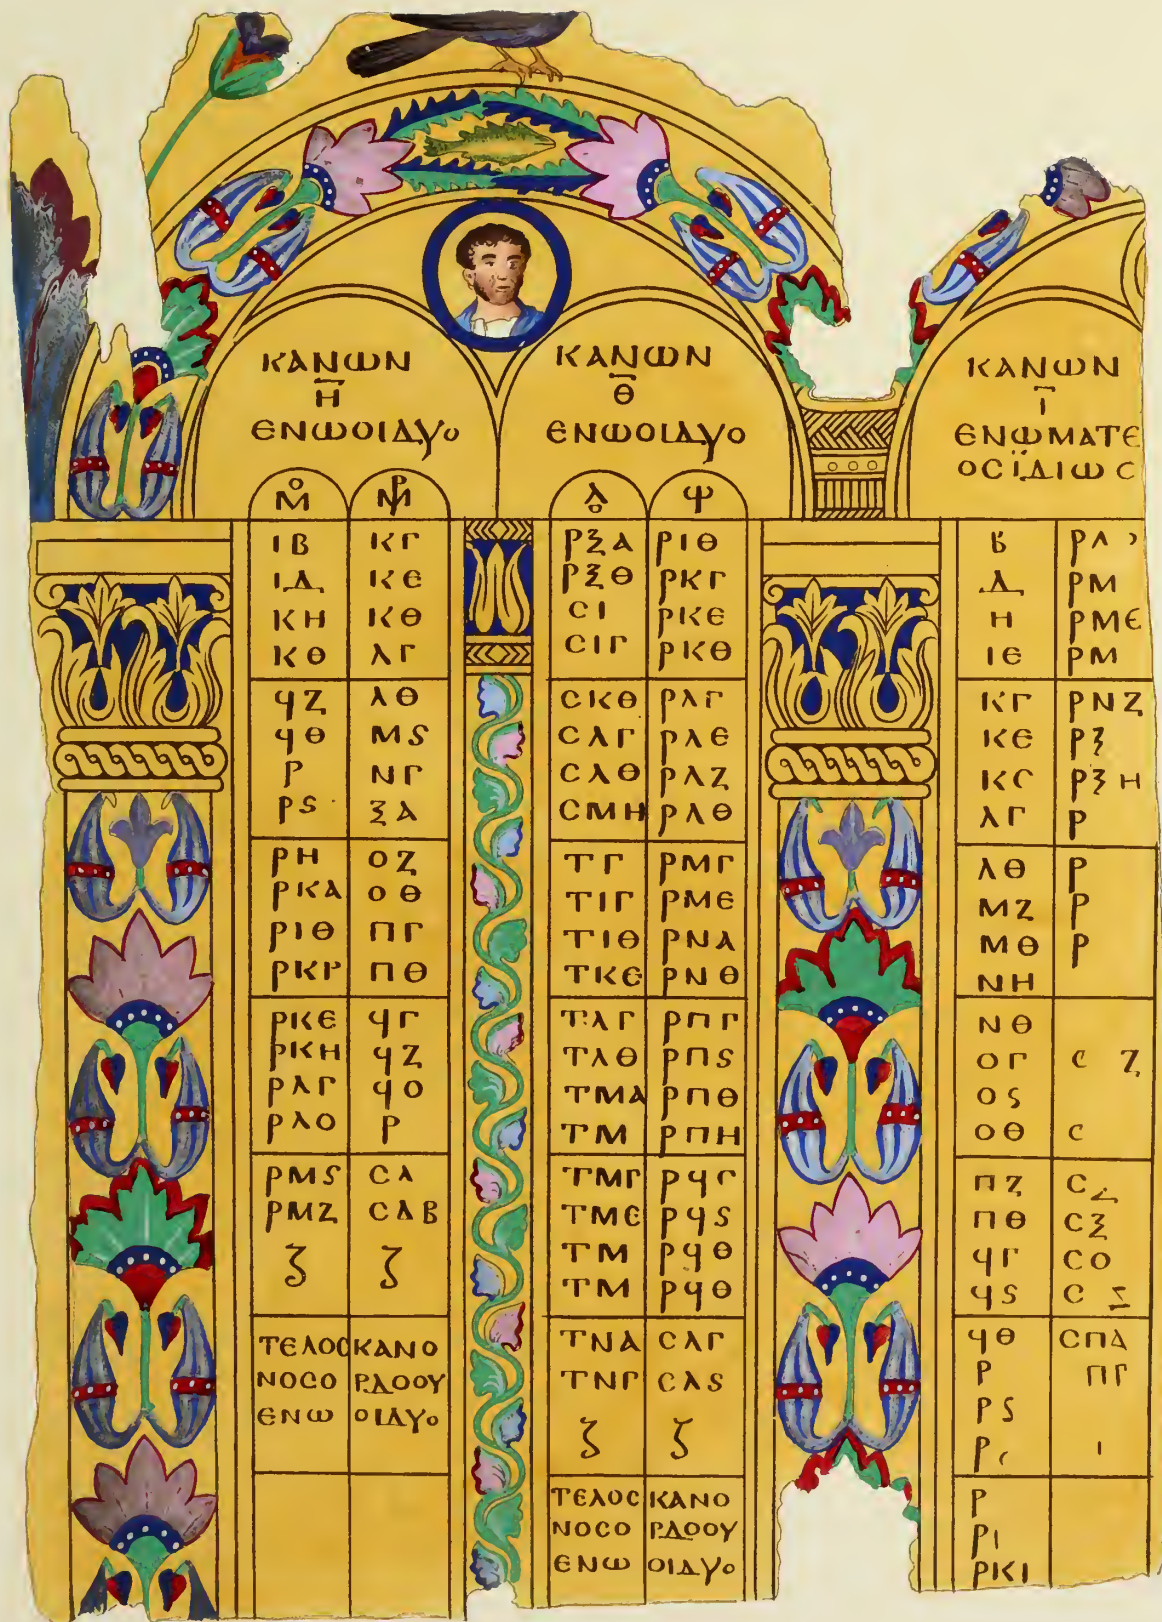 ΚΑΝѠΝ
Η
ΕΝѠΟΙΔΥΟ
ΙΒ ΚΓ
ΙΔ ΚΕ
ΚΗ ΚΘ
ΚΘ ΛΓ
ϤΖ ΛΘ
ϤΘ ΜS
Ρ ΝΓ
ΡS ΞΑ
ΡΗ ΟΖ
ΡΚΑ ΟΘ
ΡΙΘ ΠΓ
ΡΚΡ ΠΘ
ΡΚΕ ϤΓ
ΡΚΗ ϤΖ
ΡΛΓ ϤΟ
ΡΛΟ Ρ
ΡΜS ϹΛ
ΡΜΖ ϹΛΒ
ζ ζ
ΤΕΛΟϹ ΚΑΝΟ
ΝΟϹΟ ΓΔΟΟΥ
ΕΝѠ ΟΙΔΥΟ
ΚΑΝѠΝ
Θ
ΕΝѠΟΙΔΥΟ
ΡΞΑ ΡΙΘ
ΡΞΘ ΡΚΓ
ϹΙ ΡΚΕ
ϹΙΓ ΡΚΘ
ϹΚΘ ΡΛΓ
ϹΛΓ ΡΛΕ
ϹΛΘ ΡΛΖ
ϹΜΗ ΡΛΘ
ΤΓ ΡΜΓ
ΤΙΓ ΡΜΕ
ΤΙΘ ΡΝΑ
ΤΚΕ ΡΝΘ
ΤΛΓ ΡΠΓ
ΤΛΘ ΡΠS
ΤΜΑ ΡΠΘ
ΤΜ ΡΠΗ
ΤΜΓ ΡϤΓ
ΤΜΕ ΡϤS
ΤΜ ΡϤΘ
ΤΜ ΡϤΘ
ΤΝΑ ϹΛΓ
ΤΝΓ ϹΛS
ζ ζ
ΤΕΛΟϹ ΚΑΝΟ
ΝΟϹΟ ΡΔΟΟΥ
ΕΝѠ ΟΙΔΥΟ
ΚΑΝѠΝ
Ι
ΕΝѠΜΑΤΕ
ΟϹΪΔΙѠϹ
Β ΡΛ
Δ ΡΜ
Η ΡΜΕ
ΙΕ ΡΜ
ΚΓ ΡΝΖ
ΚΕ ΡΞ
ΚϹ ΡΞΗ
ΛΓ Ρ
ΛΘ Ρ
ΜΖ Ρ
ΜΘ Ρ
ΝΗ
ΝΘ
ΟΓ Ϲ Ζ
ΟS
ΟΘ Ϲ
ΠΖ Ϲ
ΠΘ ϹΞ
ϤΓ ϹΟ
ϤS Ϲ
ϤΘ ϹΠΑ
Ρ ΠΓ
ΡS
Ρ Ι
Ρ
ΡΙ
ΡΚΙ